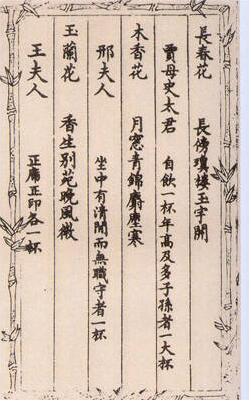 長春花　長傍瓊樓玉宇開
賈母史太君　自飲一杯年高及多子孫者一大杯
木香花　月窓青錦麝塵寒
邢夫人　坐中有清閒而無職守者一杯
玉蘭花　香生別苑晚風微
王夫人　正席正印各一杯